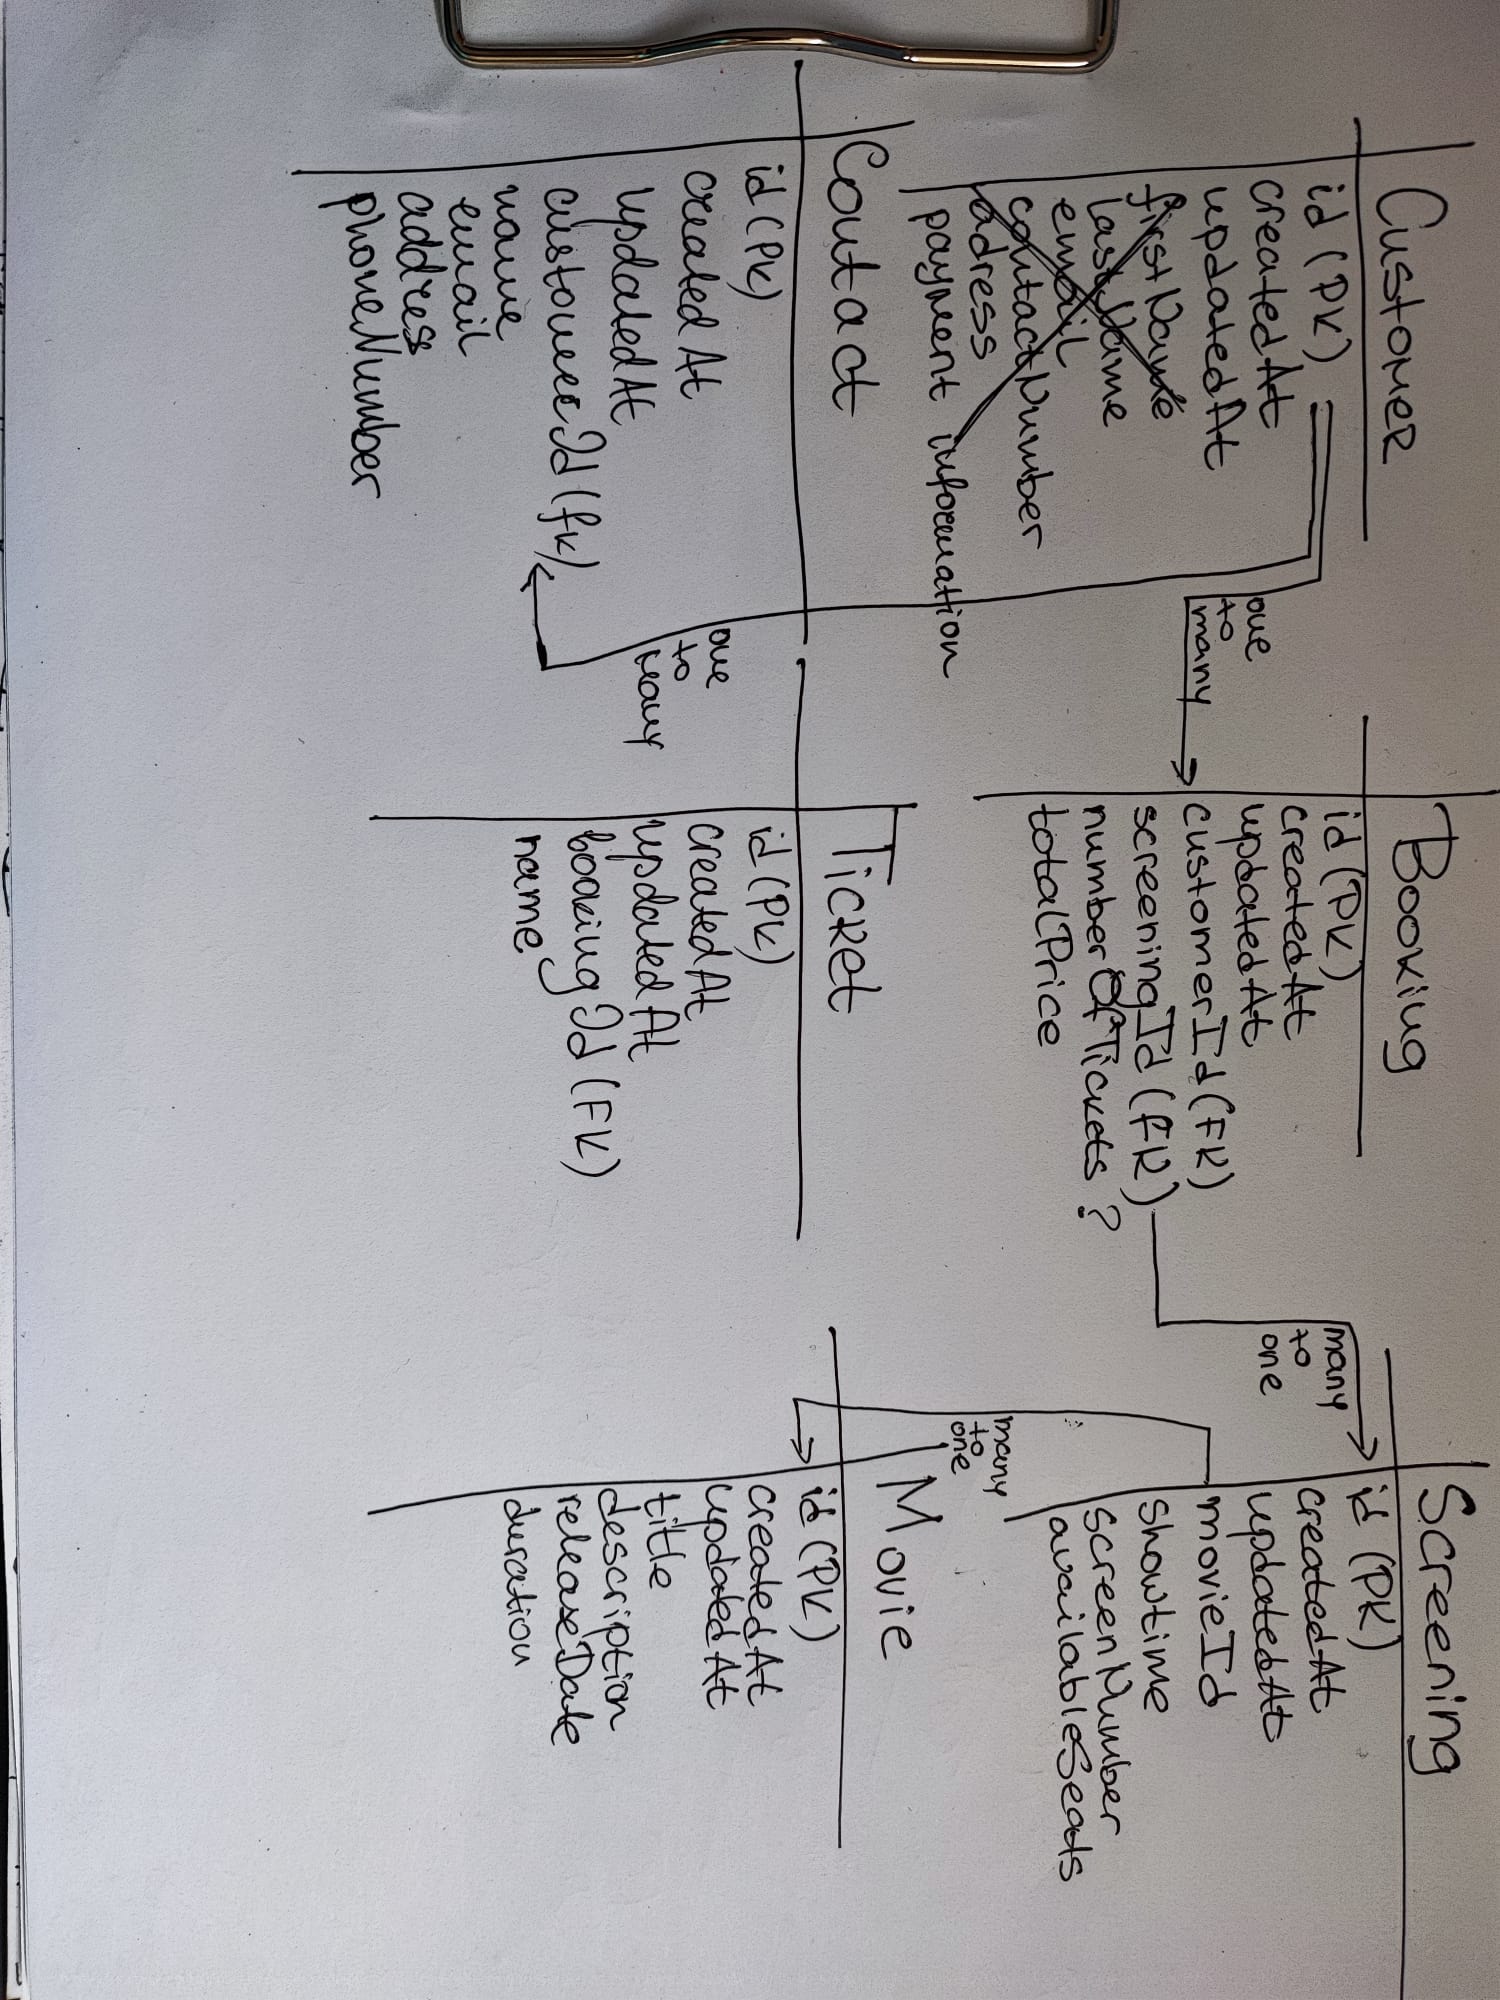 Customer
id (PK)
createdAt
updatedAt
firstName
lastName
email
contactNumber
adress
payment information
one
to
many
Booking
id (PK)
createdAt
updatedAt
customerId (FK)
screeningId (FK)
numberOfTickets ?
totalPrice
many
to
one
Screening
id (PK)
createdAt
updatedAt
movieId
showtime
screenNumber
availableSeats
many
to
one
Contact
id (PK)
createdAt
updatedAt
customerId (fk)
name
email
address
phoneNumber
one
to
many
Ticket
id (PK)
createdAt
updatedAt
bookingId (FK)
name
Movie
id (PK)
createdAt
updatedAt
title
description
releaseDate
duration